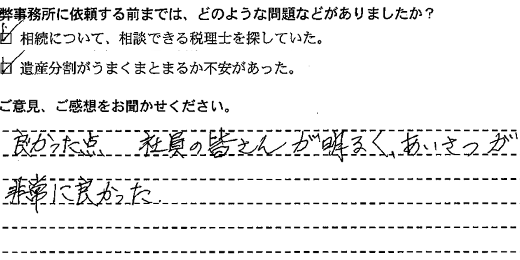 弊事務所に依頼する前までは、どのような問題などがありましたか？
☑ 相続について、相談できる税理士を探していた。
☑ 遺産分割がうまくまとまるか不安があった。
ご意見、ご感想をお聞かせください。
良かった点 社員の皆さんが明るく、あいさつが
非常に良かった.